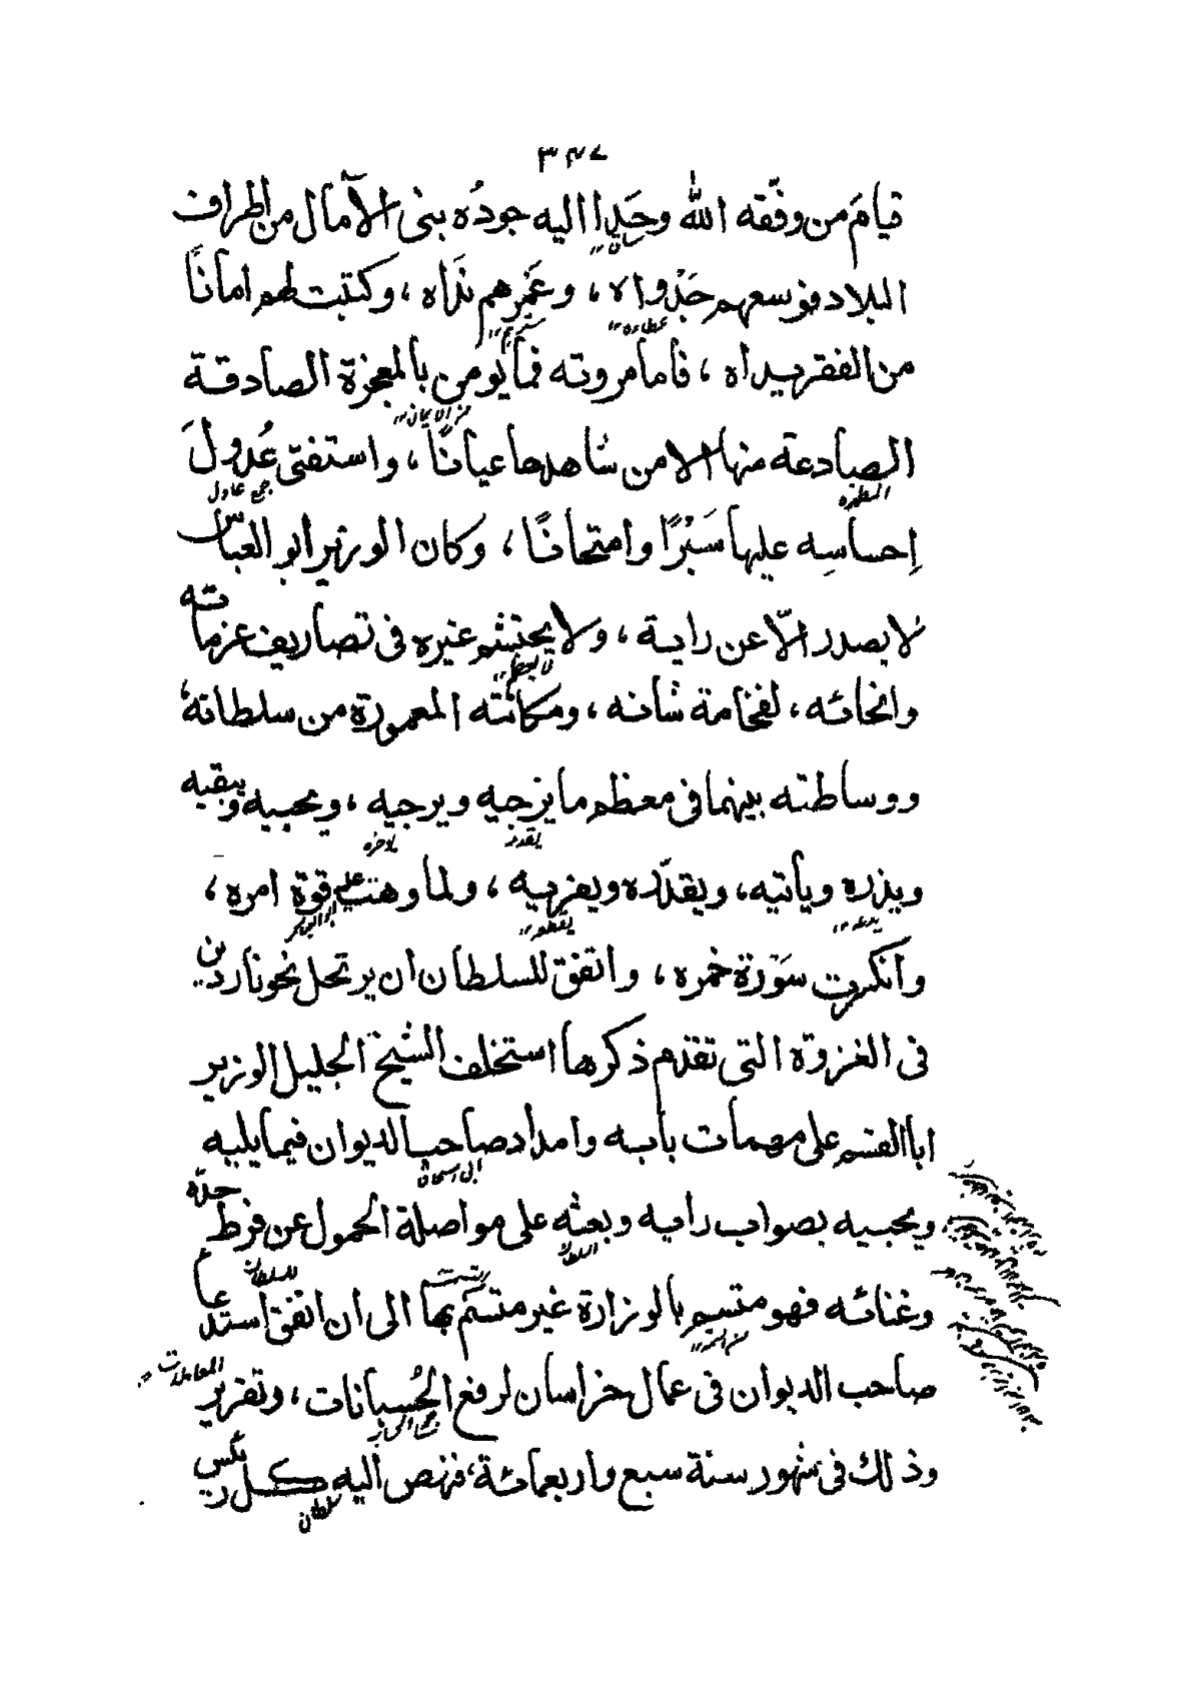 ٣٤٧
قيامَ من وفّقه الله وحَدا اليه جودُه بنى الآمال من اطراف
البلاد فوسعهم جَدْواه ، وعَمّرهم نَداه ، وكتبت لهم اماناً
من الفقر يداه ، فأما مروته فما يؤمن بالمعجزة الصادقة
الصادعة منها الا من شاهدها عياناً ، واستفتى عُدولَ
إحساسِه عليها سَبْرًا وامتحانًا ، وكان الوزير ابو العباس
لا يصدر الّا عن رايه ، ولا يحتشم غيره فى تصاريف عزماته
وانحائه ، لفخامة شانه ، ومكانته المعمورة من سلطانه ،
ووساطته بينهما فى معظم ما يزجيه ويرجيه ، ويحييه ويبقيه
يقدمه
ويذره ويأتيه ، ويقدّره ويفريه ، ولما وهنت قوة امره ،
يدعه
يقطعه
وانكرت سَوْرة خمره ، واتفق للسلطان ان يرتحل نحو ناردين
فى الغزوة التى تقدم ذكرها استخلف الشيخ الجليل الوزير
ابا القسم على مهمات بابه وامداد صاحب الديوان فيما يليه
ويجبيه بصواب رايه وبعثه على مواصلة الحمول عن فرط جدّه
السلطان
للسلطان
وغنائه فهو متسم بالوزارة غير متسم بها الى ان اتفق استدعا
صاحب الديوان فى عمال خراسان لرفع الحُسبانات ، وتقرير المعاملات
وذلك فى شهور سنة سبع واربعمائة ، فنهض اليه كل رئيس
سلطان